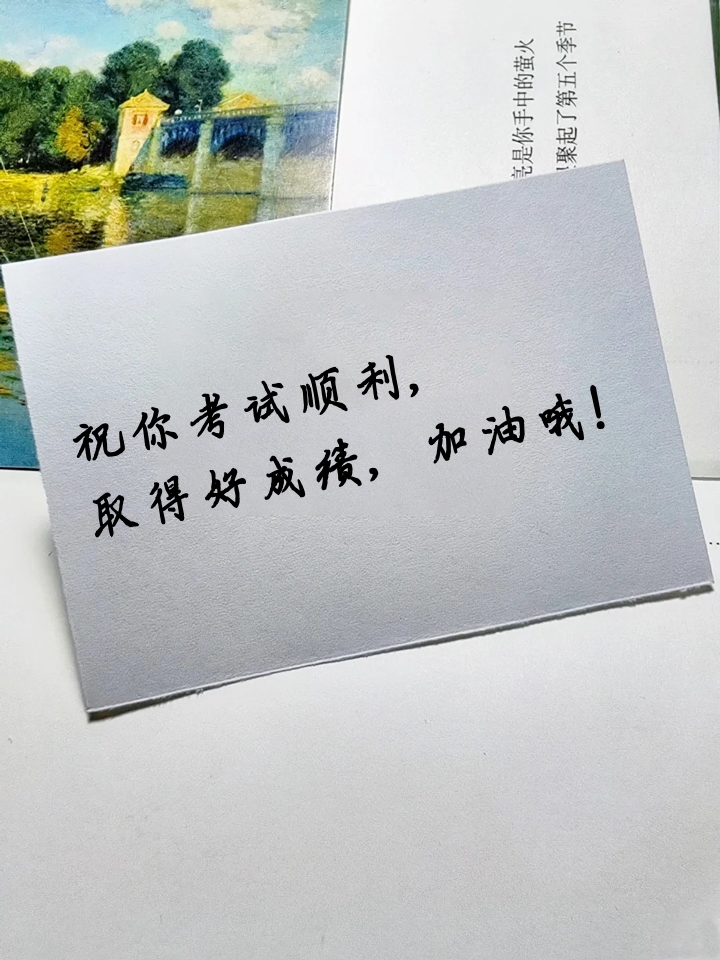 亮是你手中的萤火
聚起了第五个季节
祝你考试顺利,
取得好成绩, 加油哦!